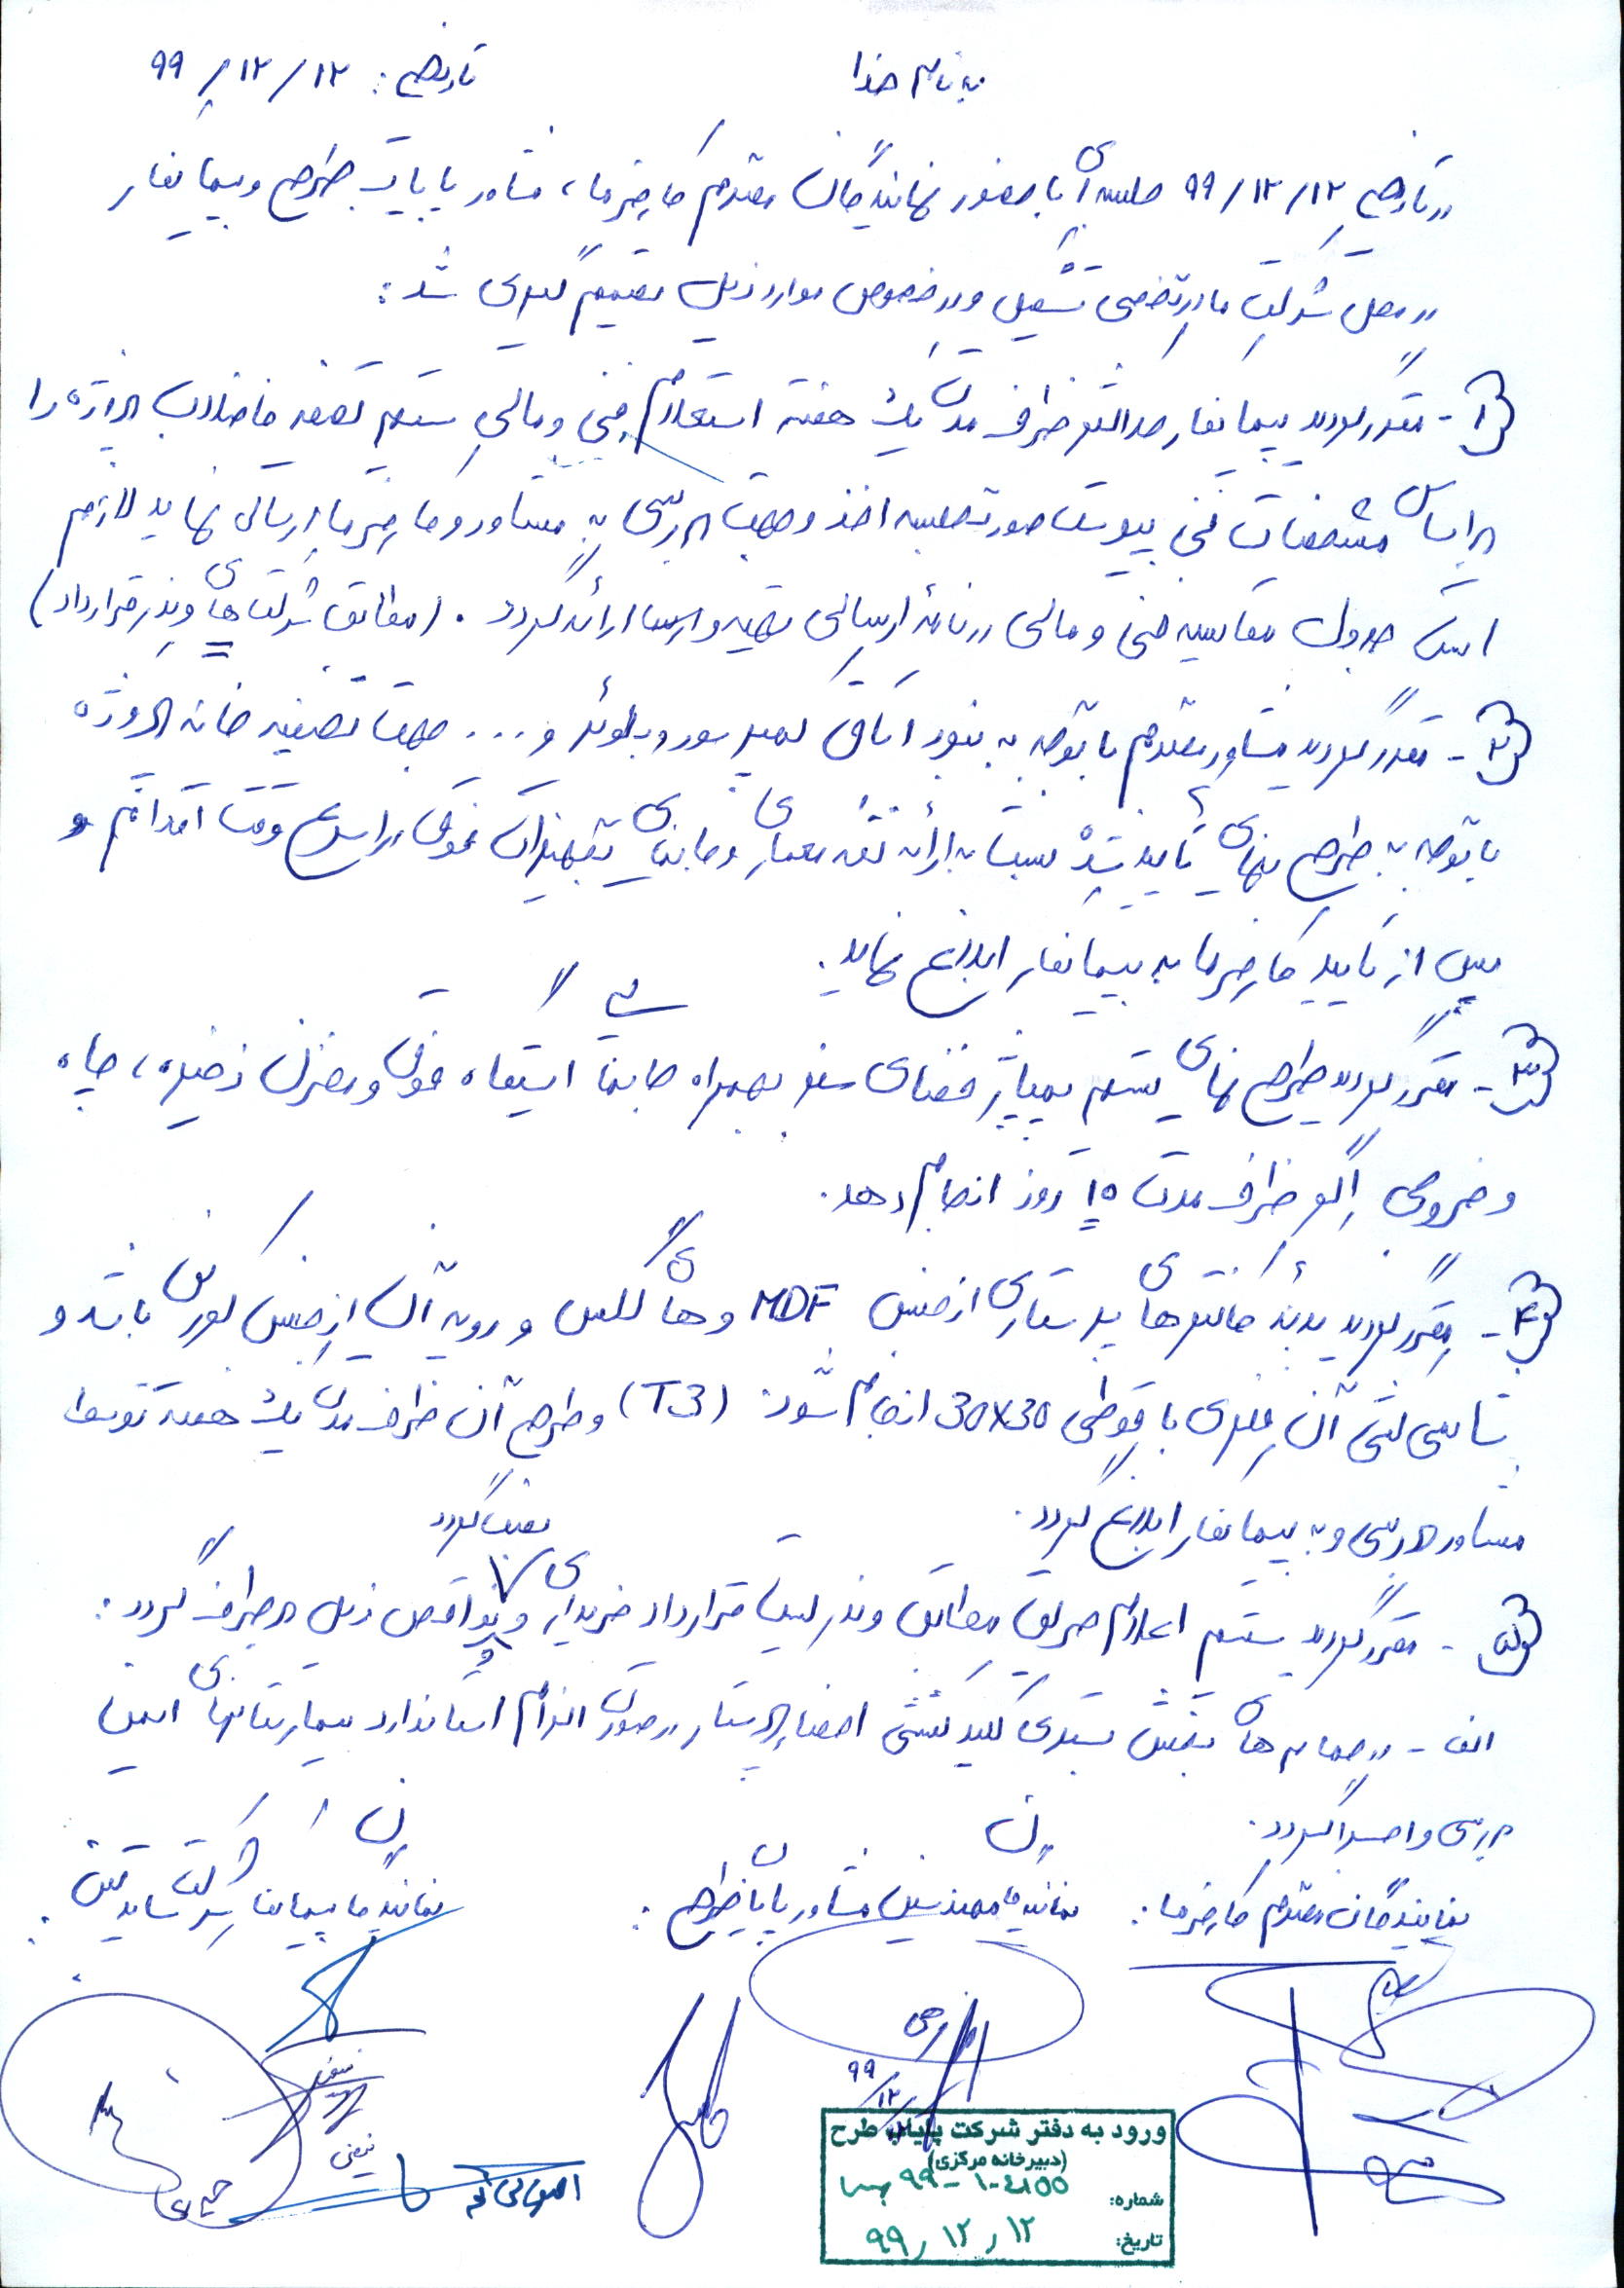 به نام خدا
تاریخ: ۹۹/۱۲/۱۲
در تاریخ ۹۹/۱۲/۱۲ جلسه ای با حضور نمایندگان محترم کارفرما، مشاور پایاب طرح و پیمانکار
در محل شرکت مادر تخصصی تشکیل و در خصوص موارد ذیل تصمیم گیری شد:
۱- مقرر گردید پیمانکار حداکثر ظرف مدت یک هفته استعلام فنی و مالی سیستم تصفیه فاضلاب پروژه را
بر اساس مشخصات فنی پیوست صورتجلسه اخذ و جهت بررسی به مشاور و کارفرما ارسال نماید لازم
است جدول مقایسه فنی و مالی در نامه ارسالی تهیه و ارائه گردد. (مطابق شرکت های وندر قرارداد)
۲- مقرر گردید مشاور محترم با توجه به نبود اتاق کمپرسور و بلوئر و ... جهت تصفیه خانه پروژه
با توجه به طرح نهایی تایید شده نسبت به ارائه نقشه معماری و جانمایی تجهیزات فوق در اسرع وقت اقدام و
پس از تایید کارفرما به پیمانکار ابلاغ نماید.
۳- مقرر گردید طرح نهایی سیستم پمپاژ فضای سبز بهمراه جانمایی ایستگاه فوق و مخزن ذخیره، چاه
و خروجی اگر ظرف مدت ۱۵ روز انجام دهد.
۴- مقرر گردید بدنه کانترهای پرستاری از جنس MDF و های گلاس و رویه آن از جنس کورین باشد و
شاسی کشی آن فلزی با قوطی 30x30 انجام شود. (T3) و طرح آن ظرف مدت یک هفته توسط
مشاور بررسی و به پیمانکار ابلاغ گردد.
۵- مقرر گردید سیستم اعلام حریق مطابق وندر لیست قرارداد خریداری و نصب گردد و نواقص ذیل برطرف گردد:
الف- در حمام های بخش بستری کلید کششی احضار پرستار در صورت الزام استاندارد بیمارستانهای ایمن
بررسی و اجرا گردد.
نمایندگان محترم کارفرما:
نماینده مهندسین مشاور پایاب طرح:
نماینده پیمانکار شرکت
۹۹/۱۲/۱۲
ورود به دفتر شرکت پایاب طرح
(دبیرخانه مرکزی)
شماره:
تاریخ: ۹۹/۱۲/۱۲